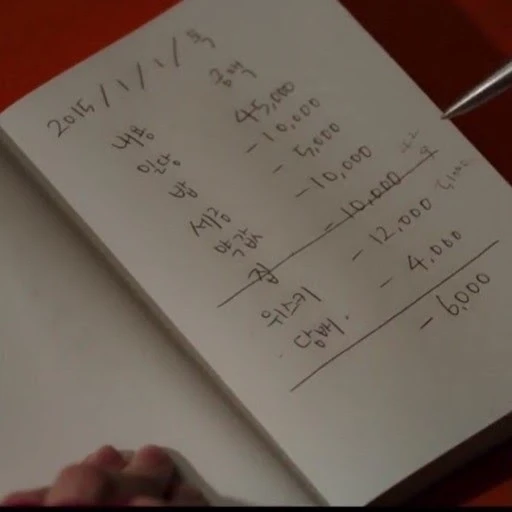 2015/1/1/목
내용 금액
일당 45,000
밥 -10,000
세금 -5,000
약값 -10,000
집 -10,000
위스키 -12,000
담배. -4,000
-6,000